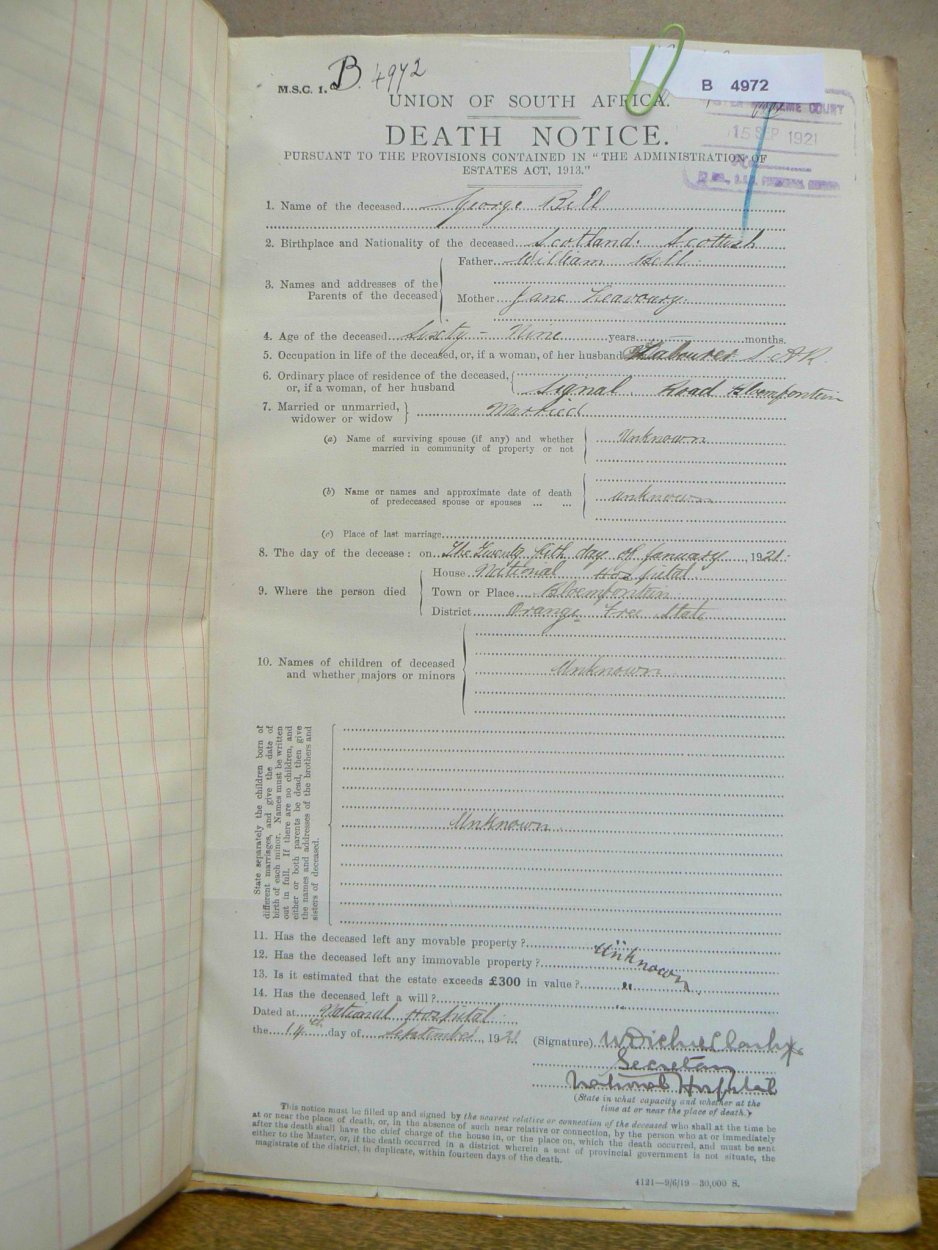 M.S.C. 1. B. 4972
B 4972
UNION OF SOUTH AFRICA.
SUPREME COURT
15 SEP 1921
DEATH NOTICE.
PURSUANT TO THE PROVISIONS CONTAINED IN "THE ADMINISTRATION OF
ESTATES ACT, 1913."
1. Name of the deceased George Bell
2. Birthplace and Nationality of the deceased Scotland. Scottish
3. Names and addresses of the Parents of the deceased
Father William Bell.
Mother Jane
4. Age of the deceased Sixty - Nine years months.
5. Occupation in life of the deceased, or, if a woman, of her husband Labourer S.A.R
6. Ordinary place of residence of the deceased, or, if a woman, of her husband
Signal Road Bloemfontein
7. Married or unmarried, widower or widow Married
(a) Name of surviving spouse (if any) and whether married in community of property or not Unknown
(b) Name or names and approximate date of death of predeceased spouse or spouses ... ... unknown
(c) Place of last marriage
8. The day of the decease: on The Twenty fifth day of January 1921.
9. Where the person died
House National Hospital
Town or Place Bloemfontein
District Orange Free State
10. Names of children of deceased and whether majors or minors Unknown
State separately the children born of
different marriages, and give the date of
birth of each minor. Names must be written
out in full. If there are no children, and
either or both parents be dead, then give
the names and addresses of the brothers and
sisters of deceased.
Unknown
11. Has the deceased left any movable property?
12. Has the deceased left any immovable property? Unknown
13. Is it estimated that the estate exceeds £300 in value? "
14. Has the deceased left a will? "
Dated at National Hospital.
the 14th day of September 1921
(Signature)
Secretary
National Hospital
(State in what capacity and whether at the
time at or near the place of death.)
This notice must be filled up and signed by the nearest relative or connection of the deceased who shall at the time be
at or near the place of death, or, in the absence of such near relative or connection, by the person who at or immediately
after the death shall have the chief charge of the house in, or the place on, which the death occurred, and must be sent
either to the Master, or, if the death occurred in a district wherein a seat of provincial government is not situate, the
magistrate of the district, in duplicate, within fourteen days of the death.
4121—9/6/19—30,000 S.